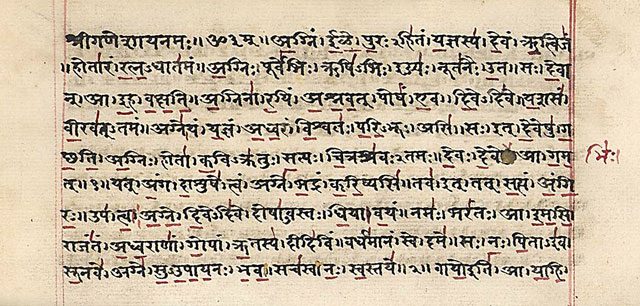 श्रीगणेशायनमः॥ॐ३म्॥अग्निं।ईळे।पुरःऽहितं।यज्ञस्य।देवं।ऋत्विजं
॥होतारं।रत्नऽधातमं॥अग्निः।पूर्वेभिः।ऋषिऽभिः।ईड्यः।नूतनैः।उत।सः।देवा
न्।आ।इह।वक्षति॥अग्निना।रयिं।अश्नवत्।पोषं।एव।दिवेऽदिवे।यशसं
वीरवत्ऽतमं॥अग्ने।यं।यज्ञं।अध्वरं।विश्वतः।परिऽभूः।असि।सः।इत्।देवेषु।ग
च्छति॥अग्निः।होता।कविऽक्रतुः।सत्यः।चित्रश्रवःऽतमः।देवः।देवे।आ।गम भिः।
त्॥१॥यत्।अंग।दाशुषे।त्वं।अग्ने।भद्रं।करिष्यसि।तव।इत्।तत्।सत्यं।अंगि
रः॥उप।त्वा।अग्ने।दिवेऽदिवे।दोषाऽवस्तः।धिया।वयं।नमः।भरंतः।आ।इमसि
राजंतं।अध्वराणां।गोपां।ऋतस्य।दीदिविं।वर्धमानं।स्वे।दमे॥सः।नः।पिताऽइव
सूनवे।अग्ने।सुऽउपायनः।भव।सचस्व।नः।स्वस्तये॥२॥वायोइति।आ।याहि।